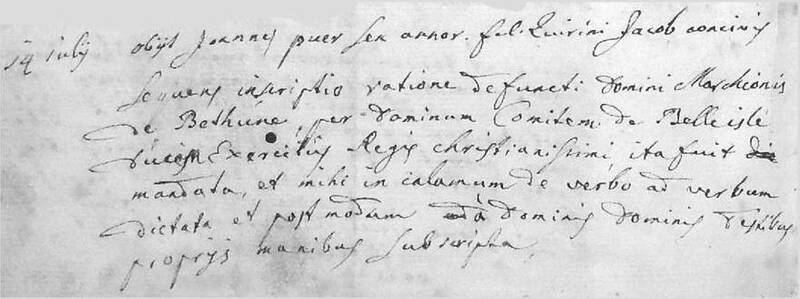 14 julij obijt Joannes puer sex annor. fil. Quirini Jacob
Sequens inscriptio ratione defuncti Domini Marchionis
de Bethune, per Dominum Comitem de Belleisle
Exercitus Regis christianissimi, ita fuit
mandata, et mihi in calamum de verbo ad verbum
dictata et postmodum à Dominis Dominis testibus
proprijs manibus subscripta,